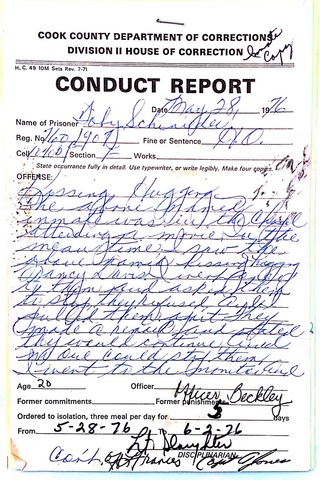 COOK COUNTY DEPARTMENT OF CORRECTIONS
DIVISION II HOUSE OF CORRECTION
Inmate
Copy
H. C. 49 10M Sets Rev. 7-71
CONDUCT REPORT
Date May 28, 1976
Name of Prisoner Toby
Reg. No. Fine or Sentence
Cell Section F Works
State occurrence fully in detail. Use typewriter, or write legibly. Make four copies.
OFFENSE:
Kissing Hugging
The above named
inmate was in the Chapel
attending a movie in the
meantime I saw the
above named kissing
Nancy Davis I went
to them and asked them
to stop they refused
pulled them apart they
made a remark and stated
they would continue and
no one could stop them
I went to the
Age 20 Officer Officer Beckley
Former commitments Former punishments
Ordered to isolation, three meal per day for 5 days
From 5-28-76 6-2-76
Lt. Slaughter
DISCIPLINARIAN
Cont. Frances Capt Jones